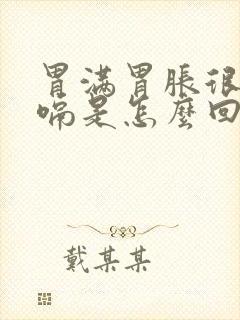 胃满胃胀很
嗝是怎麽回
戴某某